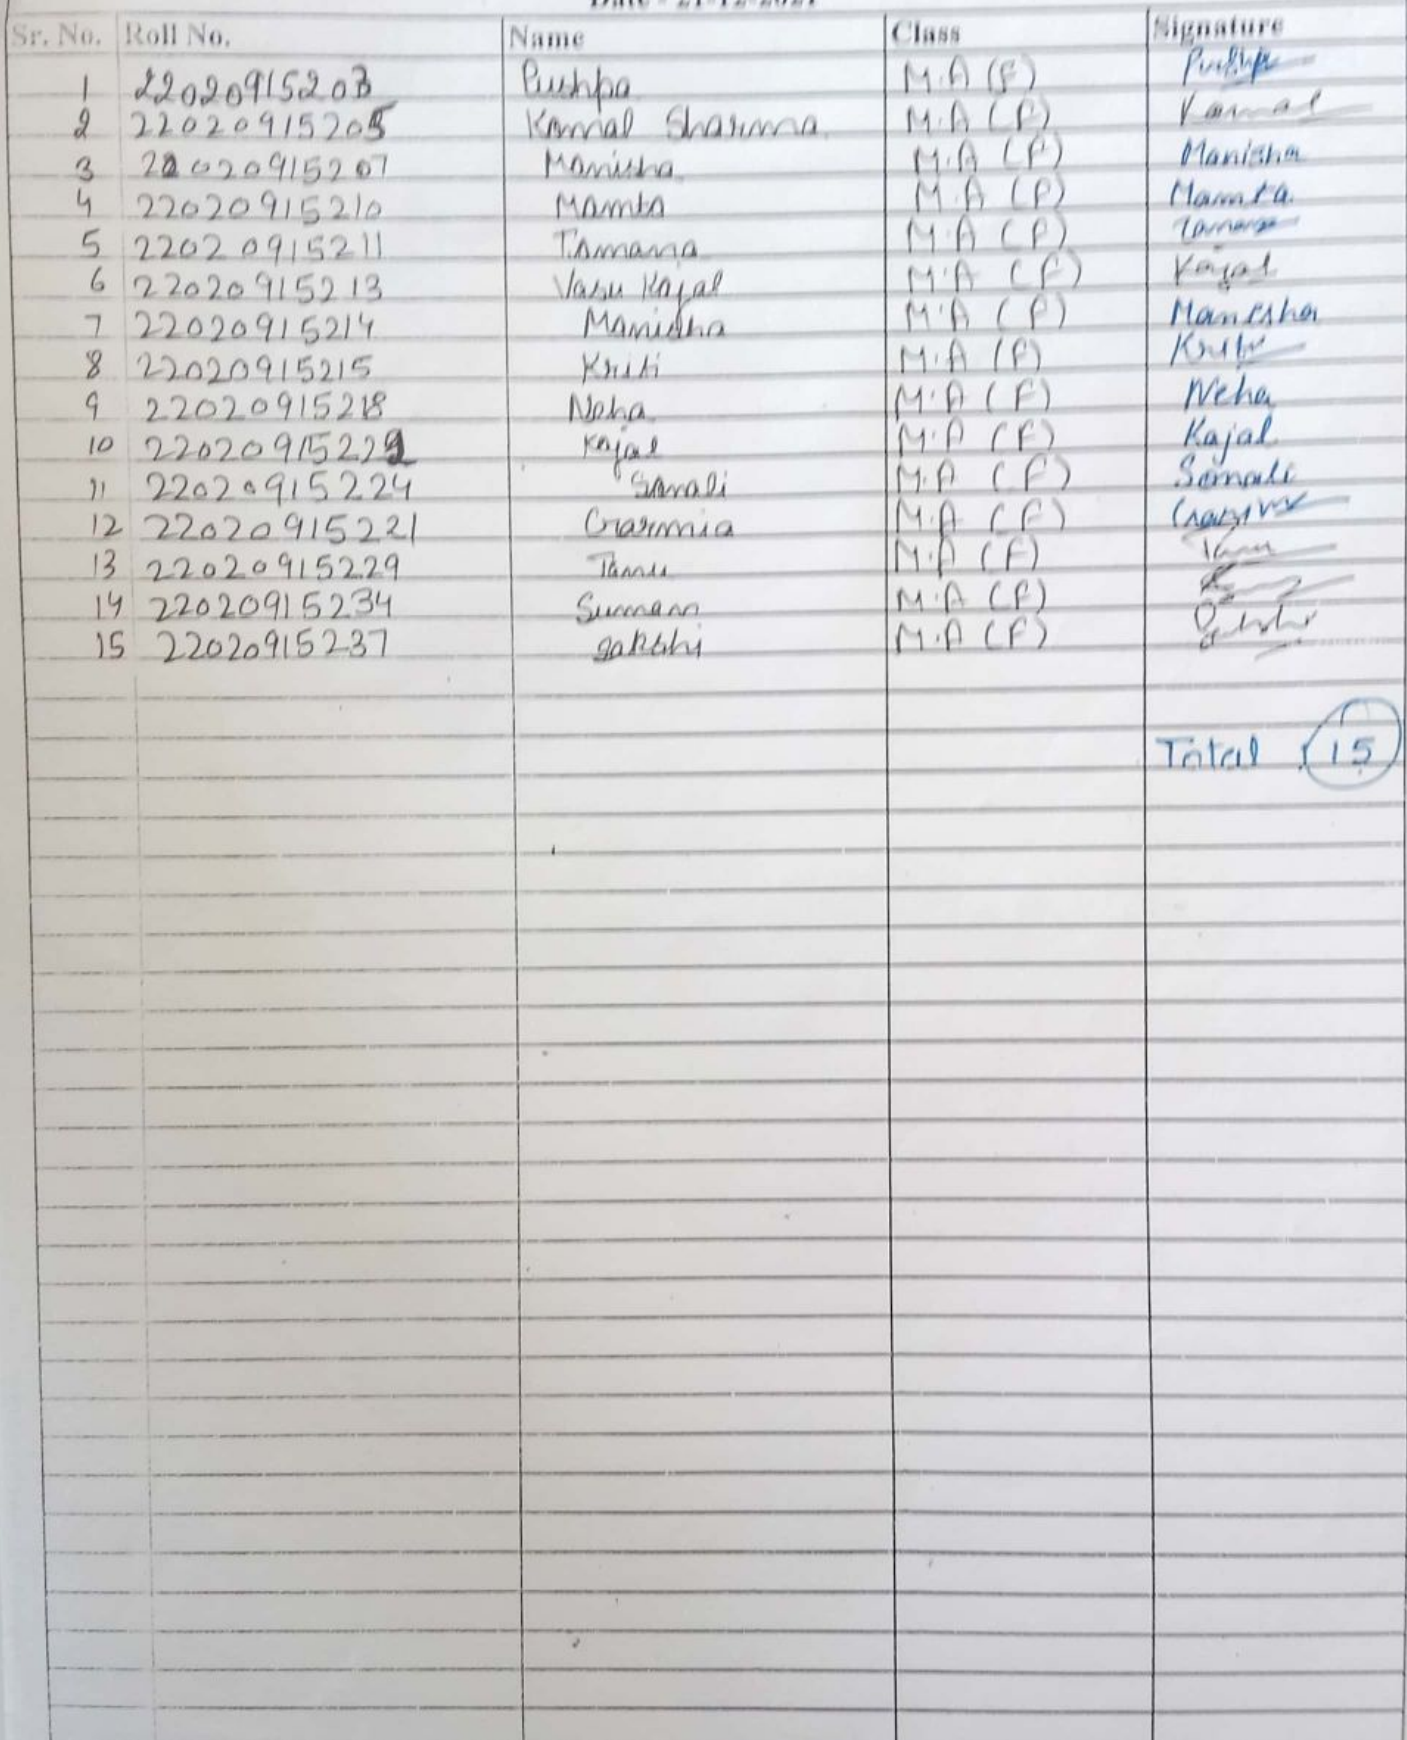 Date - 21-12-2021
Sr. No. Roll No. Name Class Signature
1 22020915203 Pushpa M.A (F) Pushpa
2 22020915205 Komal Sharma M.A (F) Komal
3 22020915207 Manisha M.A (F) Manisha
4 22020915210 Mamta M.A (F) Mamta
5 22020915211 Tamana M.A (F) Tamana
6 22020915213 Vasu Kajal M.A (F) Kajal
7 22020915214 Manisha M.A (F) Manisha
8 22020915215 Kriti M.A (F) Kriti
9 22020915218 Neha M.A (F) Neha
10 22020915222 Kajal M.A (F) Kajal
11 22020915224 Sonali M.A (F) Sonali
12 22020915221 Garmia M.A (F)
13 22020915229 Tannu M.A (F)
14 22020915234 Suman M.A (F)
15 22020915237 Sakshi M.A (F)
Total 15